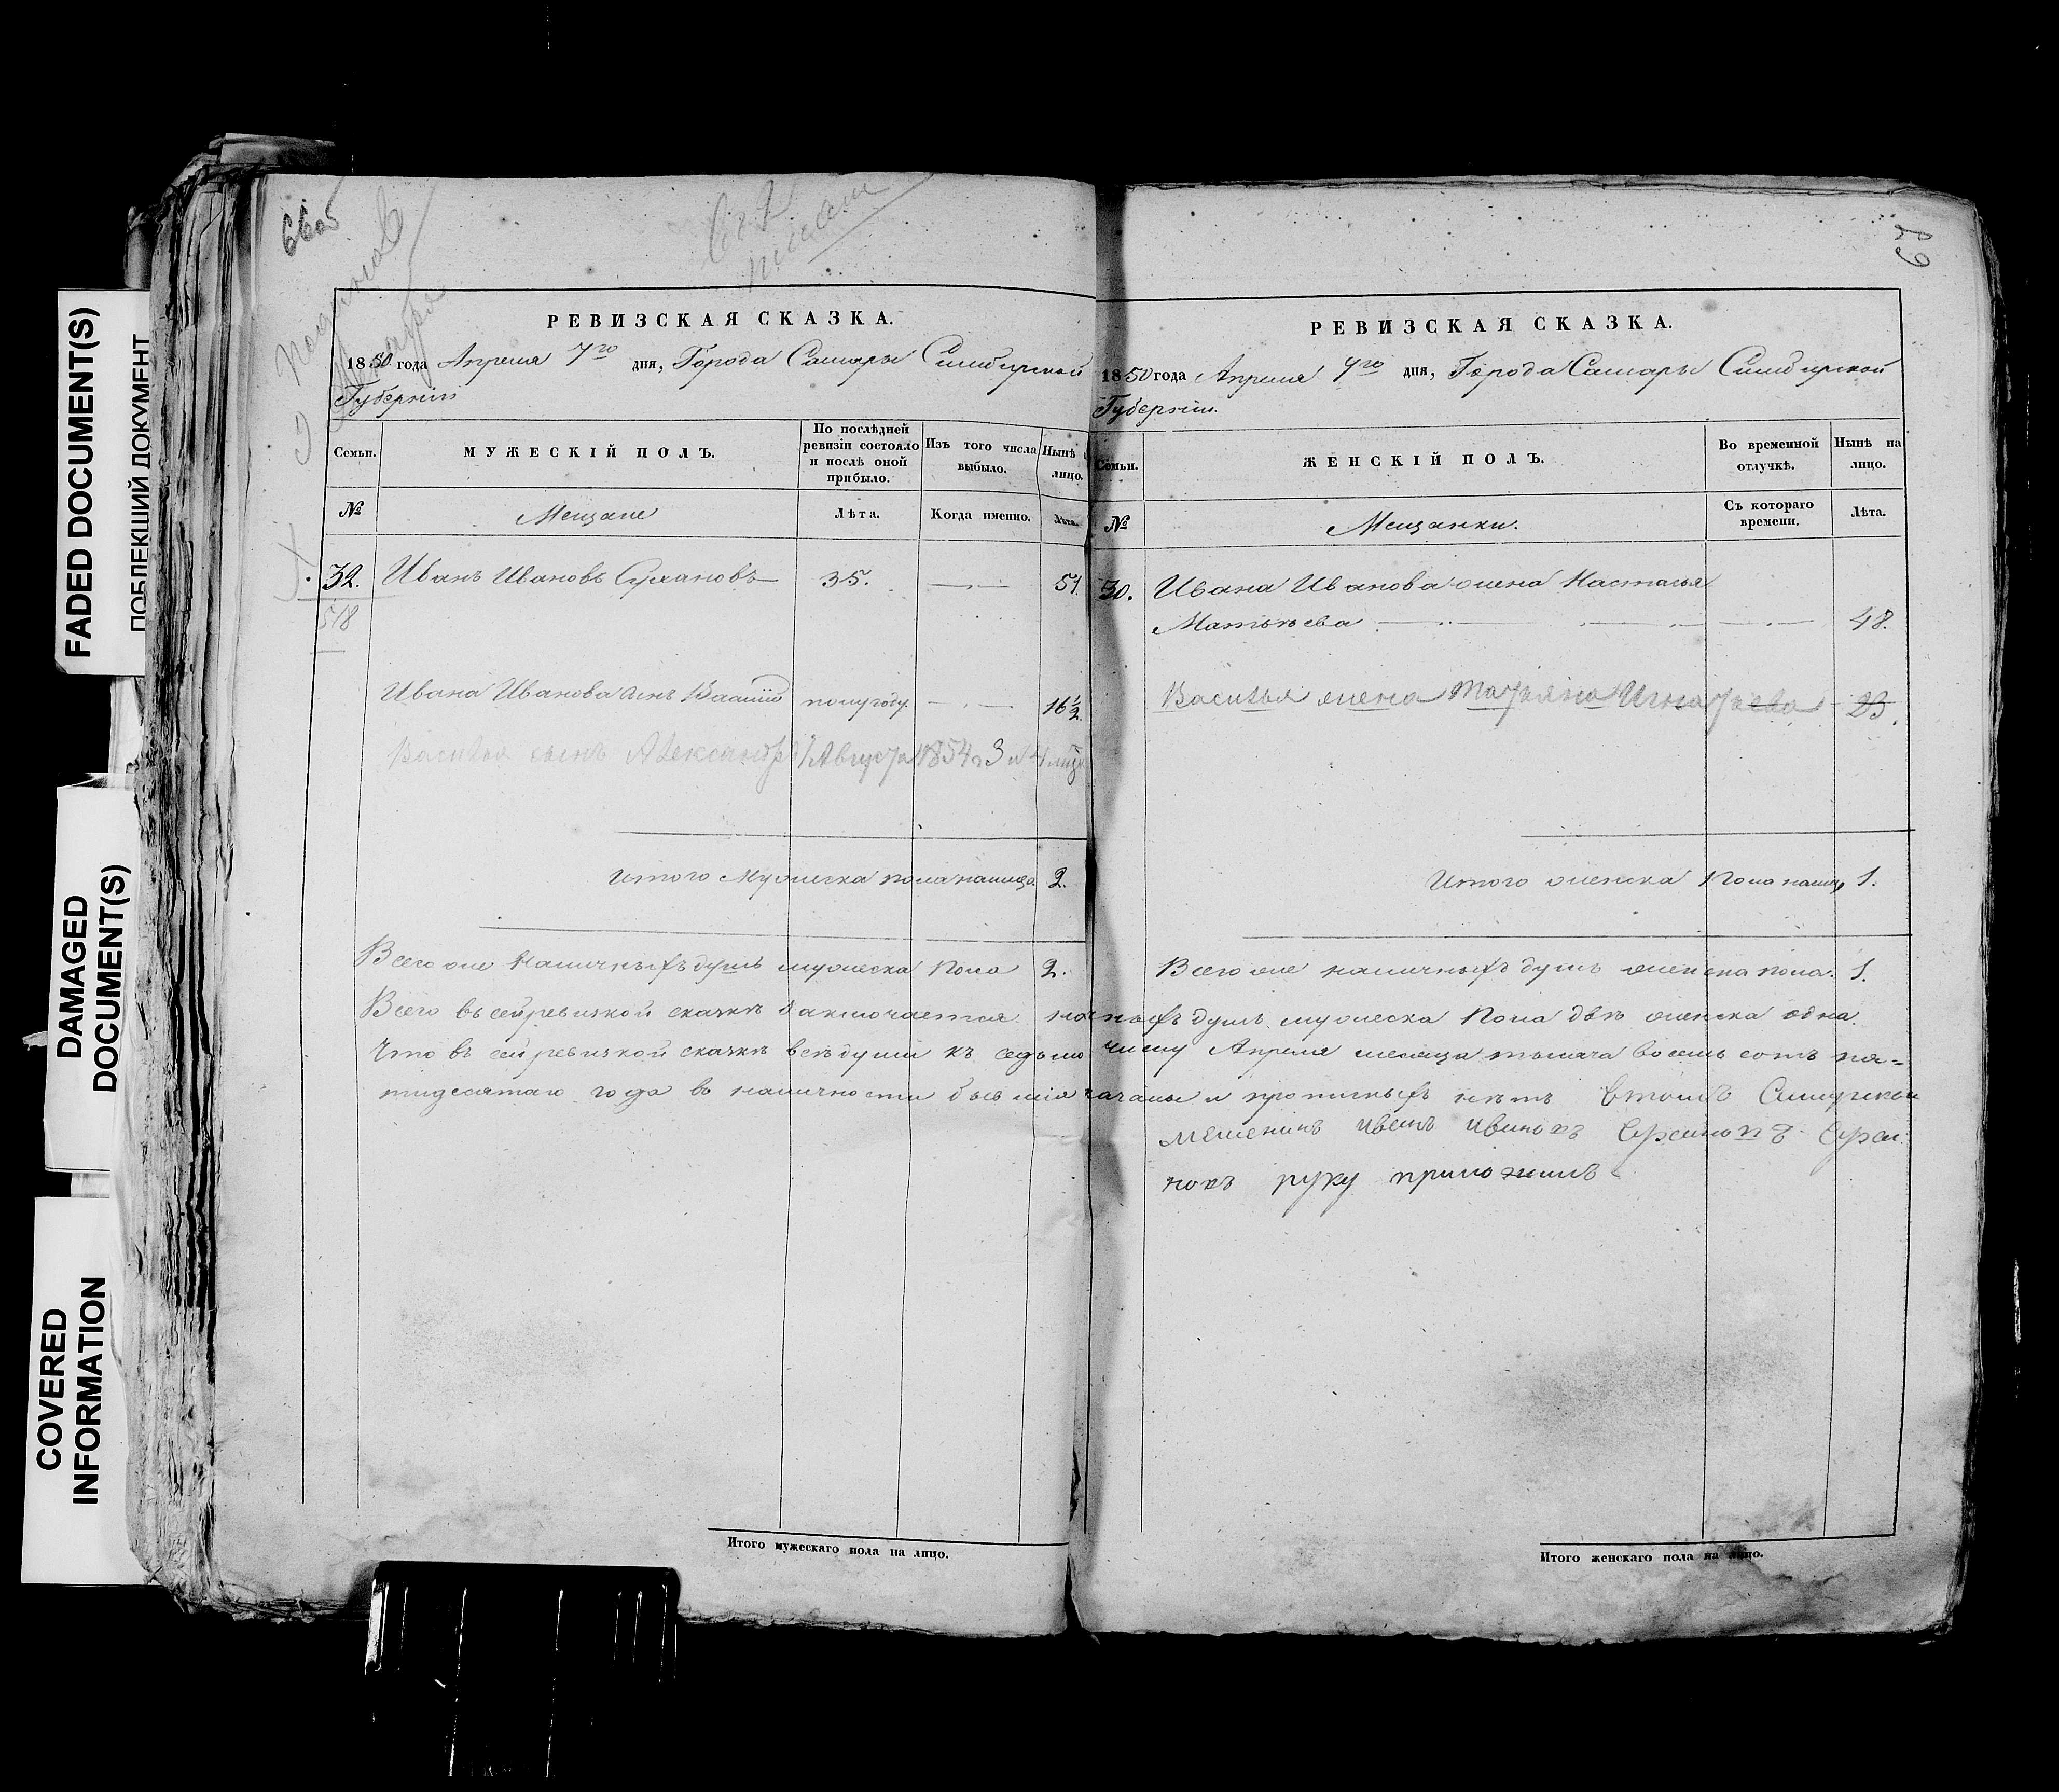 FADED DOCUMENT(S)
ПОБЛЕКШИЙ ДОКУМЕНТ
DAMAGED
DOCUMENT(S)
COVERED
INFORMATION
66об
РЕВИЗСКАЯ СКАЗКА.
1850 года Апреля 7го дня, Города Самары Симбирской
Губернiи
Семьи.
МУЖЕСКІЙ ПОЛЪ.
По послѣдней ревизіи состояло и послѣ оной прибыло.
Изъ того числа выбыло.
Нынѣ лицо.
№
Мещане
Лѣта.
Когда именно.
Лѣта.
32. Иванъ Ивановъ Сухановъ 35. 51.
518
Ивана Иванова сынъ Василiй полугоду. 16½
Василья сынъ Александръ Августа 1854 3
Итого Мужеска пола налицо 2.
Всего же наличныхъ душъ мужеска пола 2.
69
РЕВИЗСКАЯ СКАЗКА.
1850 года Апреля 7го дня, Города Самары Симбирской
Губернiи.
Семьи.
ЖЕНСКІЙ ПОЛЪ.
Во временной отлучкѣ.
Нынѣ на лицо.
№
Мещанки.
Съ котораго времени.
Лѣта.
30. Ивана Иванова жена Настасья
Матвѣева 48.
Василья жена Татьяна Игнатьева 23.
Итого женска пола налиц, 1.
Всего же наличныхъ душъ женска пола. 1.
Всего въ сей ревизкой сказкѣ заключается наличныхъ душъ мужеска пола двѣ женска одна.
Что въ сей ревизкой сказкѣ всѣ души къ седьмо числу Апреля месяца тысяча восемь сотъ пя-
тидесятаго года въ наличности бывшiя и прописныхъ нѣтъ Втомъ Самарскои
мещенинъ Ивенъ
руку приложилъ
Итого мужескаго пола на лицо.
Итого женскаго пола на лицо.